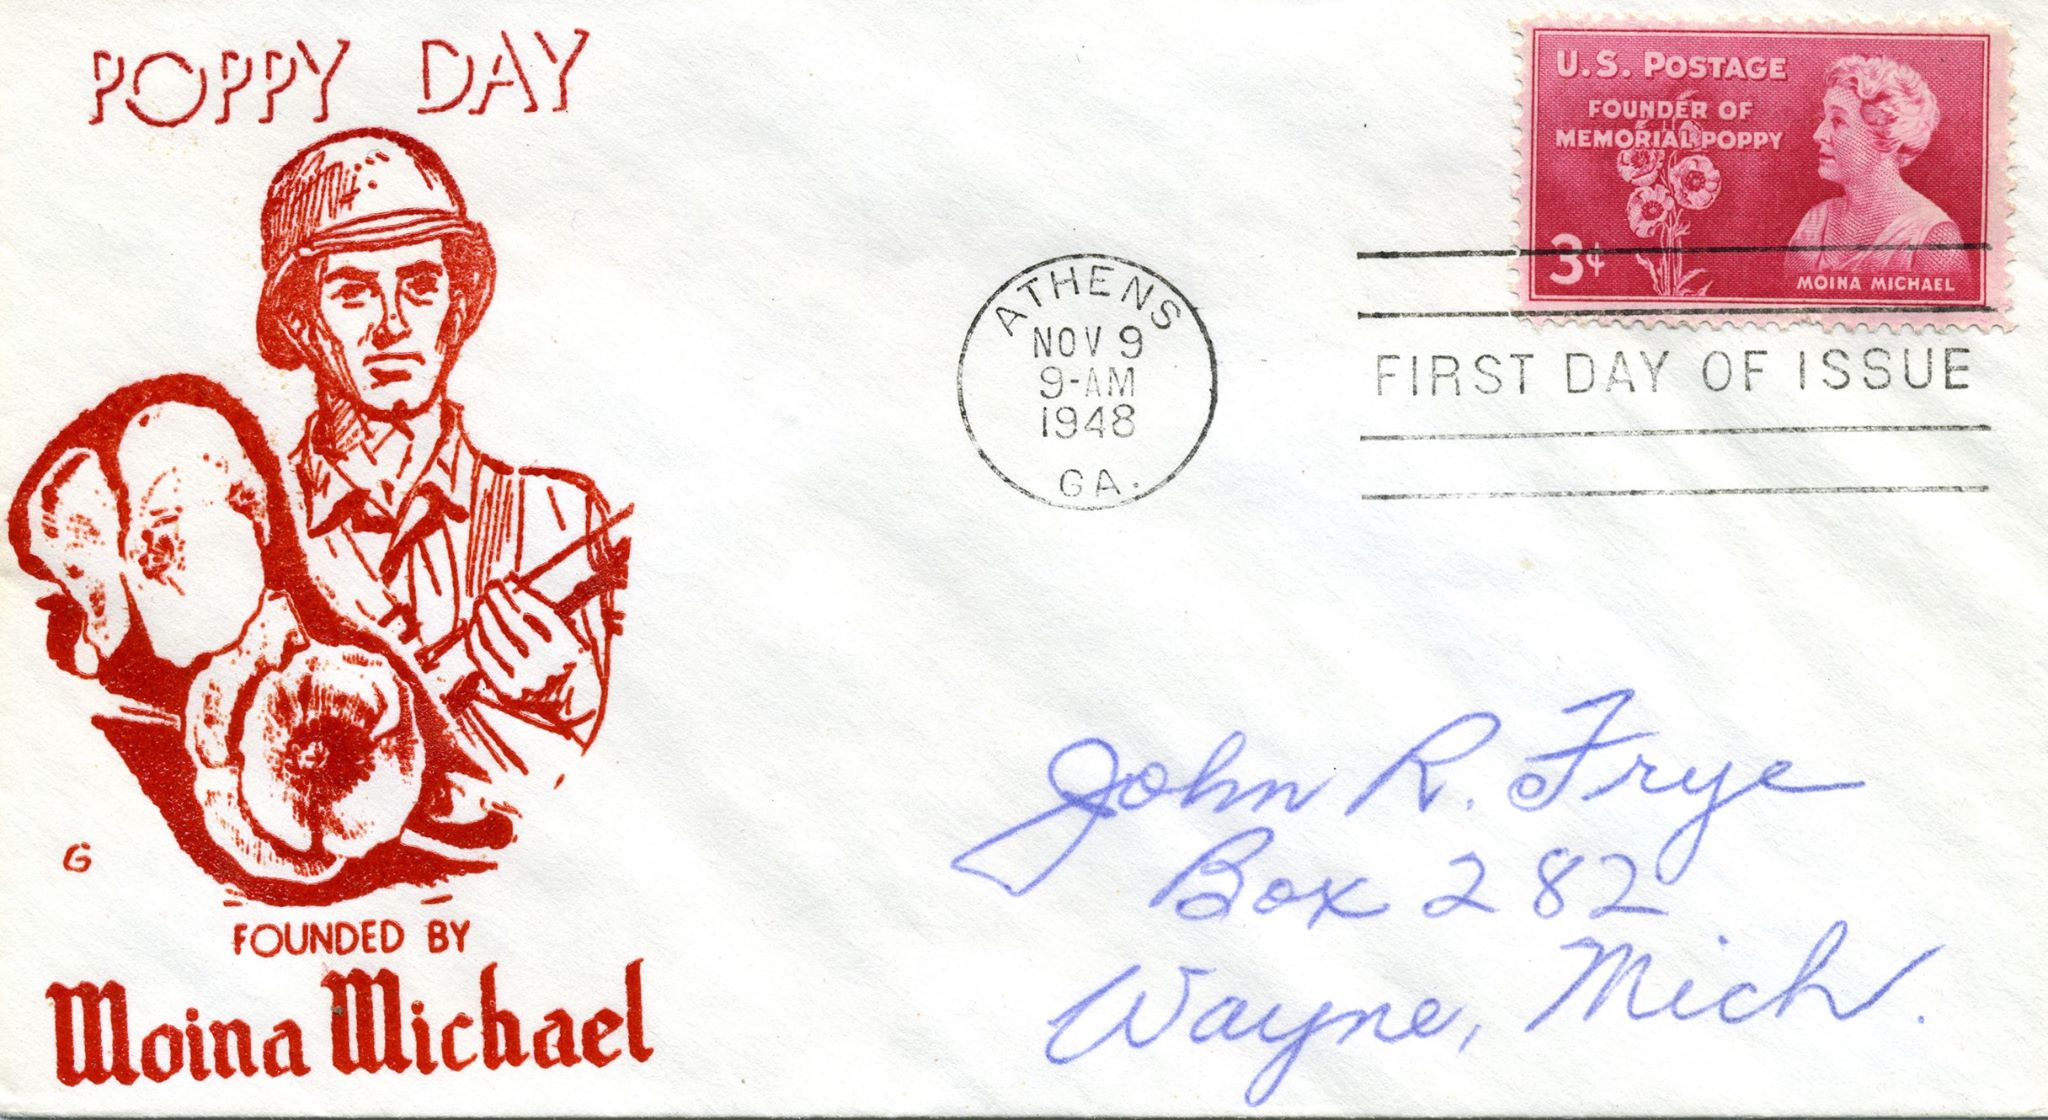 POPPY DAY
G
FOUNDED BY
Moina Michael
U.S. POSTAGE
FOUNDER OF
MEMORIAL POPPY
3¢
MOINA MICHAEL
ATHENS
NOV 9
9-AM
1948
GA.
FIRST DAY OF ISSUE
John R. Frye
Box 282
Wayne, Mich.